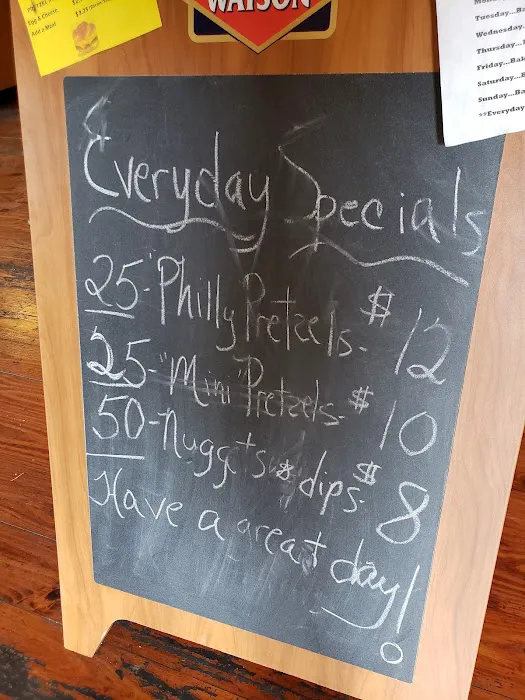 WATSON
Egg & Cheese
Add a Meat
Tuesday...Ba
Wednesday.
Thursday...
Friday...Bak
Saturday...B
Sunday...Ba
**Everyday
Everyday Specials
25-"Philly Pretzels- $12
25-"Mini" Pretzels- $10
50-Nuggets & dips- $8
Have a great day!